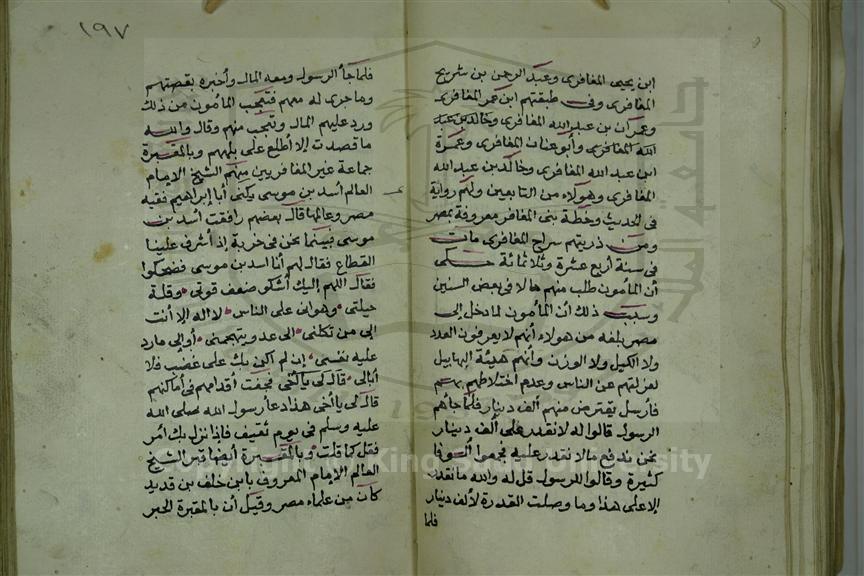 ابن يحيى المغافرى وعبد الرحمن بن شريح
المغافرى وفى طبقتهم ابن عمر المغافرى
وعمران بن عبد الله المغافرى وخالد بن عبد
الله المغافرى وأبو عنان المغافرى وعمرة
ابن عبد الله المغافرى وخالد بن عبد الله
المغافرى وهولاء من التابعين ولهم رواية
فى الحديث وخطة بنى المغافر معروفة بمصر
ومن ذريتهم سراج المغافرى مات
فى سنة أربع عشرة وثلاثمائة حكى
أن المأمون طلب منهم مالا فى بعض السنين
وسبب ذلك أن المأمون لما دخل إلى
مصر بلغه من هولاء أنهم لا يعرفون العدد
ولا الكيل ولا الوزن وأنهم هيئة البهابيل
لعزلتهم عن الناس وعدم اختلاطهم بهم
فأرسل يقترض منهم ألف دينار فلما جاءهم
الرسول قالوا له لا نقدر على ألف دينار
نحن ندفع ما لا نقدر عليه فجمعوا ألوفا
كثيرة وقالوا للرسول قل له والله ما نقدر
إلا على هذا وما وصلت القدرة لألف دينار
فلما
١٩٧
فلما جأ الرسول ومعه المال وأخبره بقصتهم
وما جرى له معهم فتعجب المأمون من ذلك
ورد عليهم المال وتعجب منهم وقال والله
ما قصدت إلا أطلع على بلههم وبالمقبرة
جماعة غير المغافريين منهم الشيخ الإمام
العالم أسد بن موسى يكنى أبا إبراهيم فقيه
مصر وعالمها قال بعضهم رافقت أسد بن
موسى فبينما نحن فى خربة إذ أشرف علينا
القطاع فقال لهم أنا اسد بن موسى فضحكوا
فقال اللهم إليك أشكو ضعف قوتى وقلة
حيلتى وهوانى على الناس لا اله إلا أنت
إلى من تكلنى إلى عدو يتجهمنى أو إلى مارد
عليه نفسى إن لم اكن بك على غضب فلا
أبالى قال لى يا أخى فجفت أقدامهم فى أماكنهم
قال لى يا أخى هذا دعا رسول الله صلى الله
عليه وسلم فى يوم ثقيف فإذا نزل بك أمر
فقل كما قلت وبالمقبرة أيضا قبر الشيخ
العالم الإمام المعروف بابن خلف بن قديد
كان من علماء مصر وقيل أن بالمقبرة الحبر
King Saud University